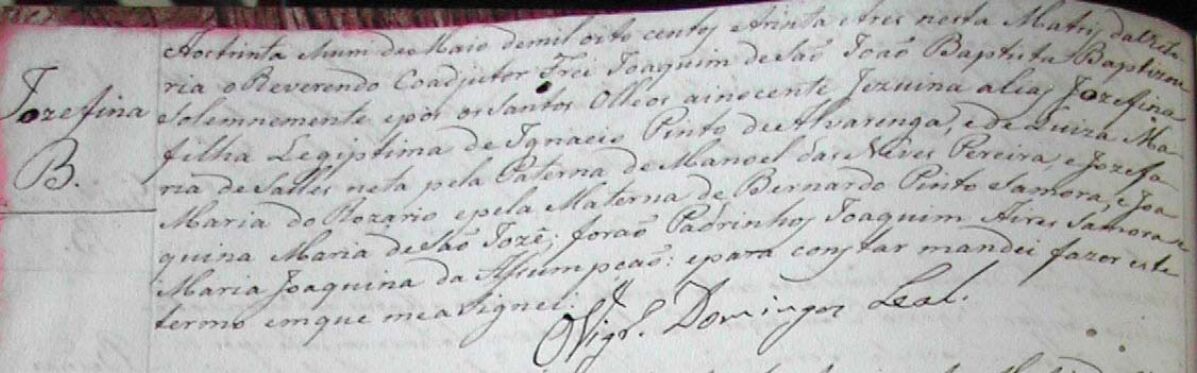 Jozefina
B.
Aos trinta e hum de Maio de mil oito centos e trinta e tres nesta Matriz da Victo
ria o Reverendo Coadjutor Frei Joaquim de São João Baptista Baptizou
Solemnemente e pôs os Santos Olleos a inocente Jezuina alias Jozefina
filha Legiptima de Ignacio Pinto de Alvarenga, e de Luiza Ma
ria de Salles neta pela Paterna de Manoel das Neves Pereira, e Jozefa
Maria do Rozario e pela Materna de Bernardo Pinto Samora, e Joa
quina Maria de São Jozê; forão Padrinhos Joaquim Aires Samora e
Maria Joaquina da Assumpcaõ: e para constar mandei fazer este
termo em que me asignei:
O Vigr.º Domingos Leal.